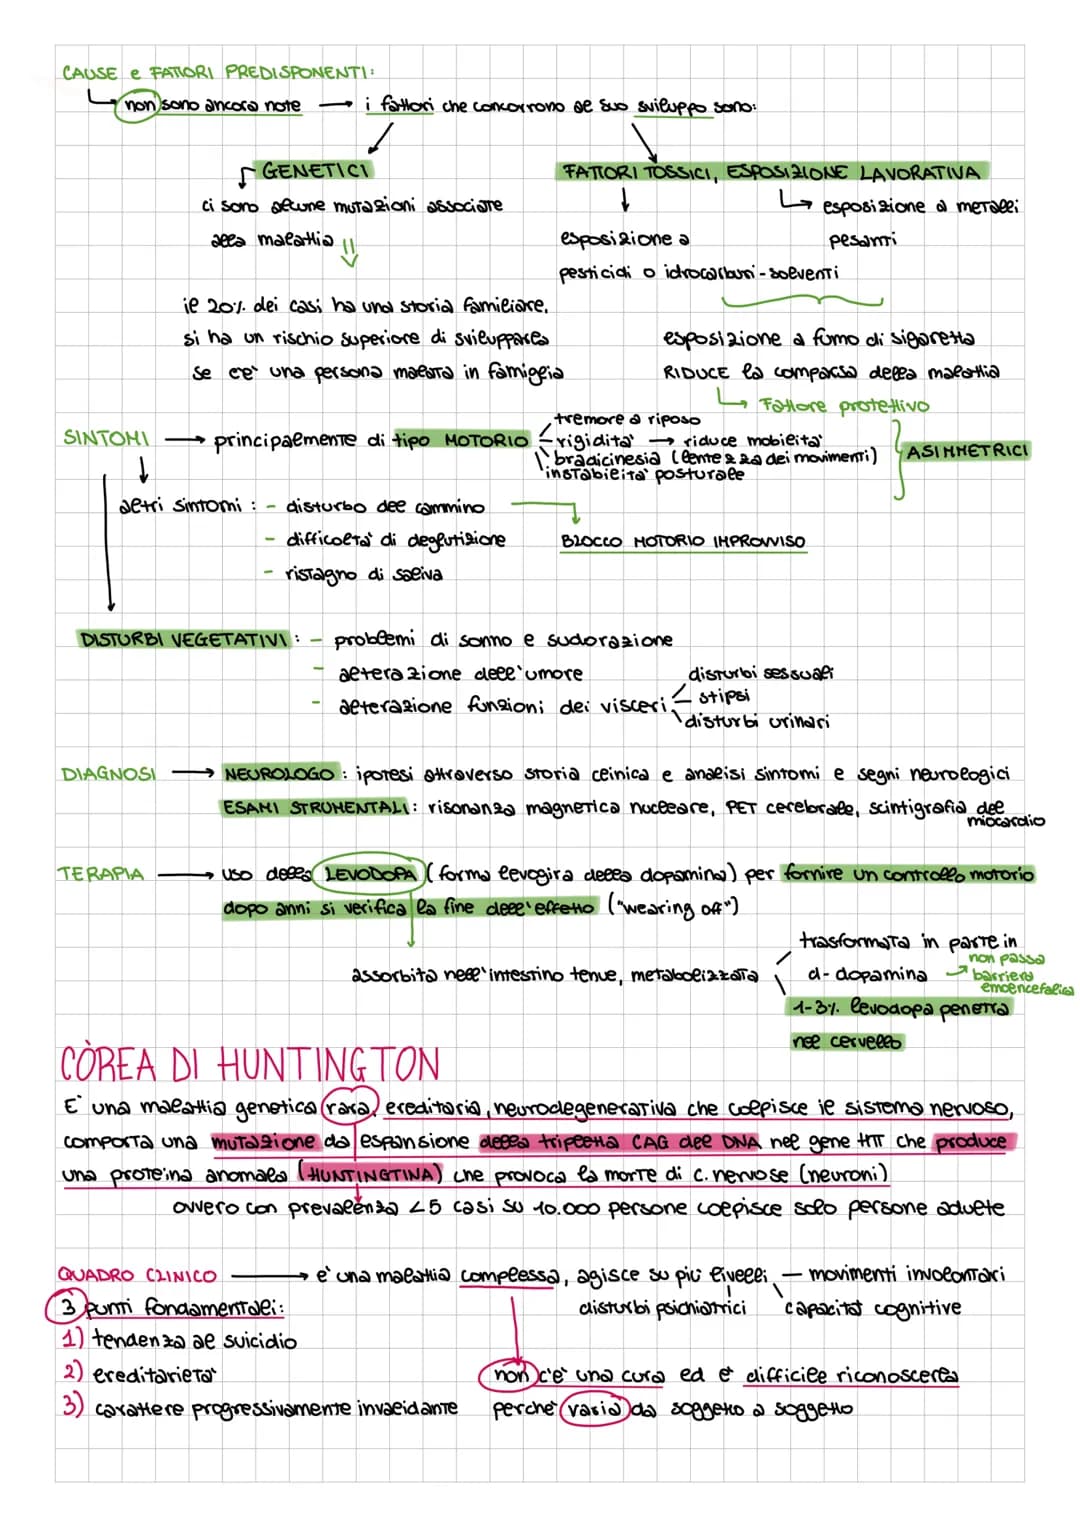 CAUSE e FATTORI PREDISPONENTI:
non sono ancora note → i fattori che concorrono al suo sviluppo sono:
GENETICI
FATTORI TOSSICI, ESPOSIZIONE LAVORATIVA
ci sono alcune mutazioni associate
alla malattia
esposizione a metalli
pesanti
esposizione a
pesticidi o idrocarburi-solventi
il 20% dei casi ha una storia familiare,
si ha un rischio superiore di svilupparla
se c'è una persona malata in famiglia
esposizione a fumo di sigaretta
RIDUCE la comparsa della malattia
Fattore protettivo
SINTOMI → principalmente di tipo MOTORIO
tremore a riposo
rigidità → riduce mobilità
bradicinesia (lentezza dei movimenti)
instabilità posturale
ASIMMETRICI
altri sintomi : - disturbo del cammino
- difficoltà di deglutizione
- ristagno di saliva
BLOCCO MOTORIO IMPROVVISO
DISTURBI VEGETATIVI : - problemi di sonno e sudorazione
- alterazione dell'umore
- alterazione funzioni dei visceri
disturbi sessuali
stipsi
disturbi urinari
DIAGNOSI → NEUROLOGO : ipotesi attraverso storia clinica e analisi sintomi e segni neurologici
ESAMI STRUMENTALI : risonanza magnetica nucleare, PET cerebrale, scintigrafia del
miocardio
TERAPIA → uso della LEVODOPA (forma levogira della dopamina) per fornire un controllo motorio
dopo anni si verifica la fine dell'effetto ("wearing off")
assorbita nell'intestino tenue, metabolizzata
trasformata in parte in
d-dopamina → non passa
barriera
emoencefalica
1-3% levodopa penetra
nel cervello
CÒREA DI HUNTINGTON
E' una malattia genetica rara, ereditaria, neurodegenerativa che colpisce il sistema nervoso,
comporta una mutazione da espansione della tripletta CAG del DNA nel gene HTT che produce
una proteina anomala (HUNTINGTINA) che provoca la morte di c. nervose (neuroni)
ovvero con prevalenza <5 casi su 10.000 persone colpisce solo persone adulte
QUADRO CLINICO → è una malattia complessa, agisce su più livelli - movimenti involontari
disturbi psichiatrici capacità cognitive
3 punti fondamentali:
1) tendenza al suicidio
2) ereditarietà
3) carattere progressivamente invalidante
non c'è una cura ed è difficile riconoscerla
perché varia da soggetto a soggetto